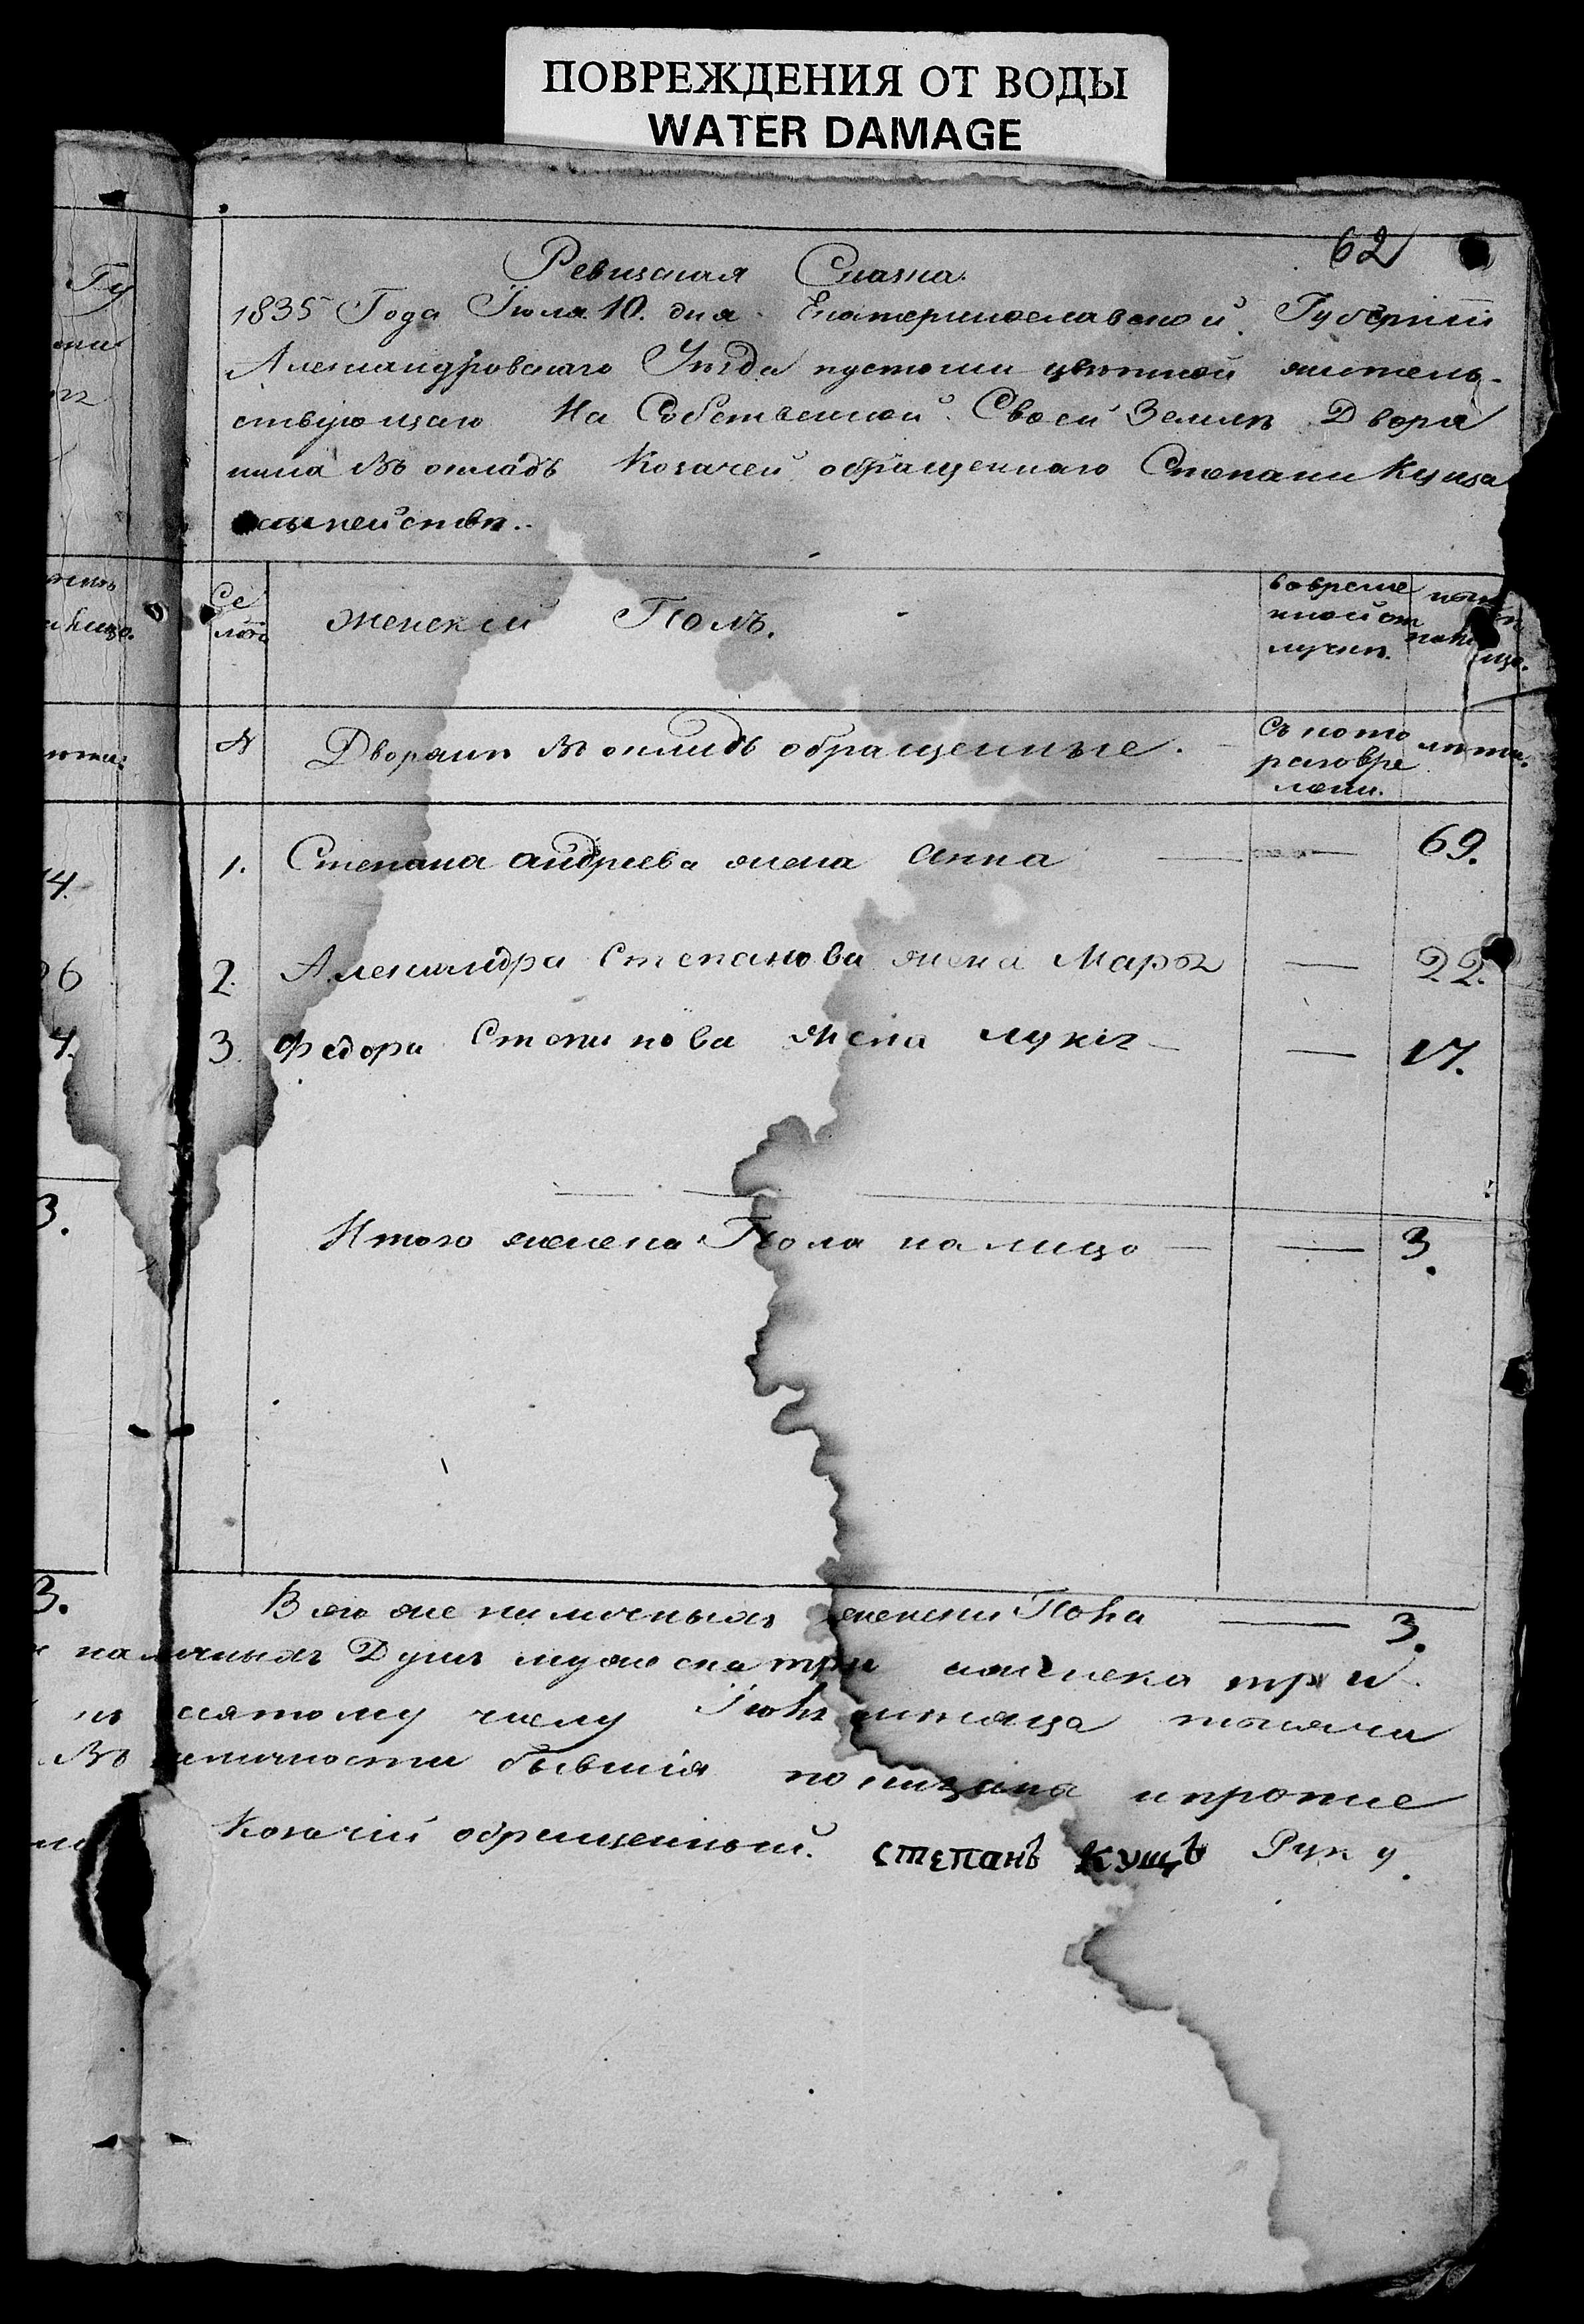 ПОВРЕЖДЕНИЯ ОТ ВОДЫ
WATER DAMAGE
62
Ревизская Сказка.
1835 Года Іюля 10. дня Екатеринославской Губерніи
Александровскаго Уезда пустоши цветной житель-
ствующаго На Собственной Своей Земле Дворя
нина въ окладъ Козачей обращеннаго Степана Куща
семействе.
Се
мьи
Женскій Полъ.
вовреме
нной от
лучке.
ныне
на
лицо.
№
Дворяне въ окладъ обращенные.
Съ кото
раговре
мени.
лета.
1. Степана андреева жена анна — — 69.
2. Александра Степанова жена Марья — 22.
3 Федора Степанова жена лукія — — 17.
Итого женска Пола налицо — — 3.
Всего же наличныхъ женска Пола — 3.
наличныхъ Душъ мужеска три женска три
десятому числу Іюля месяца тысяча
Въ наличности бывшія показана ипротие
Козачій обращенный. степанъ кущъ Руку.
Гу
4.
26
4.
3.
3.